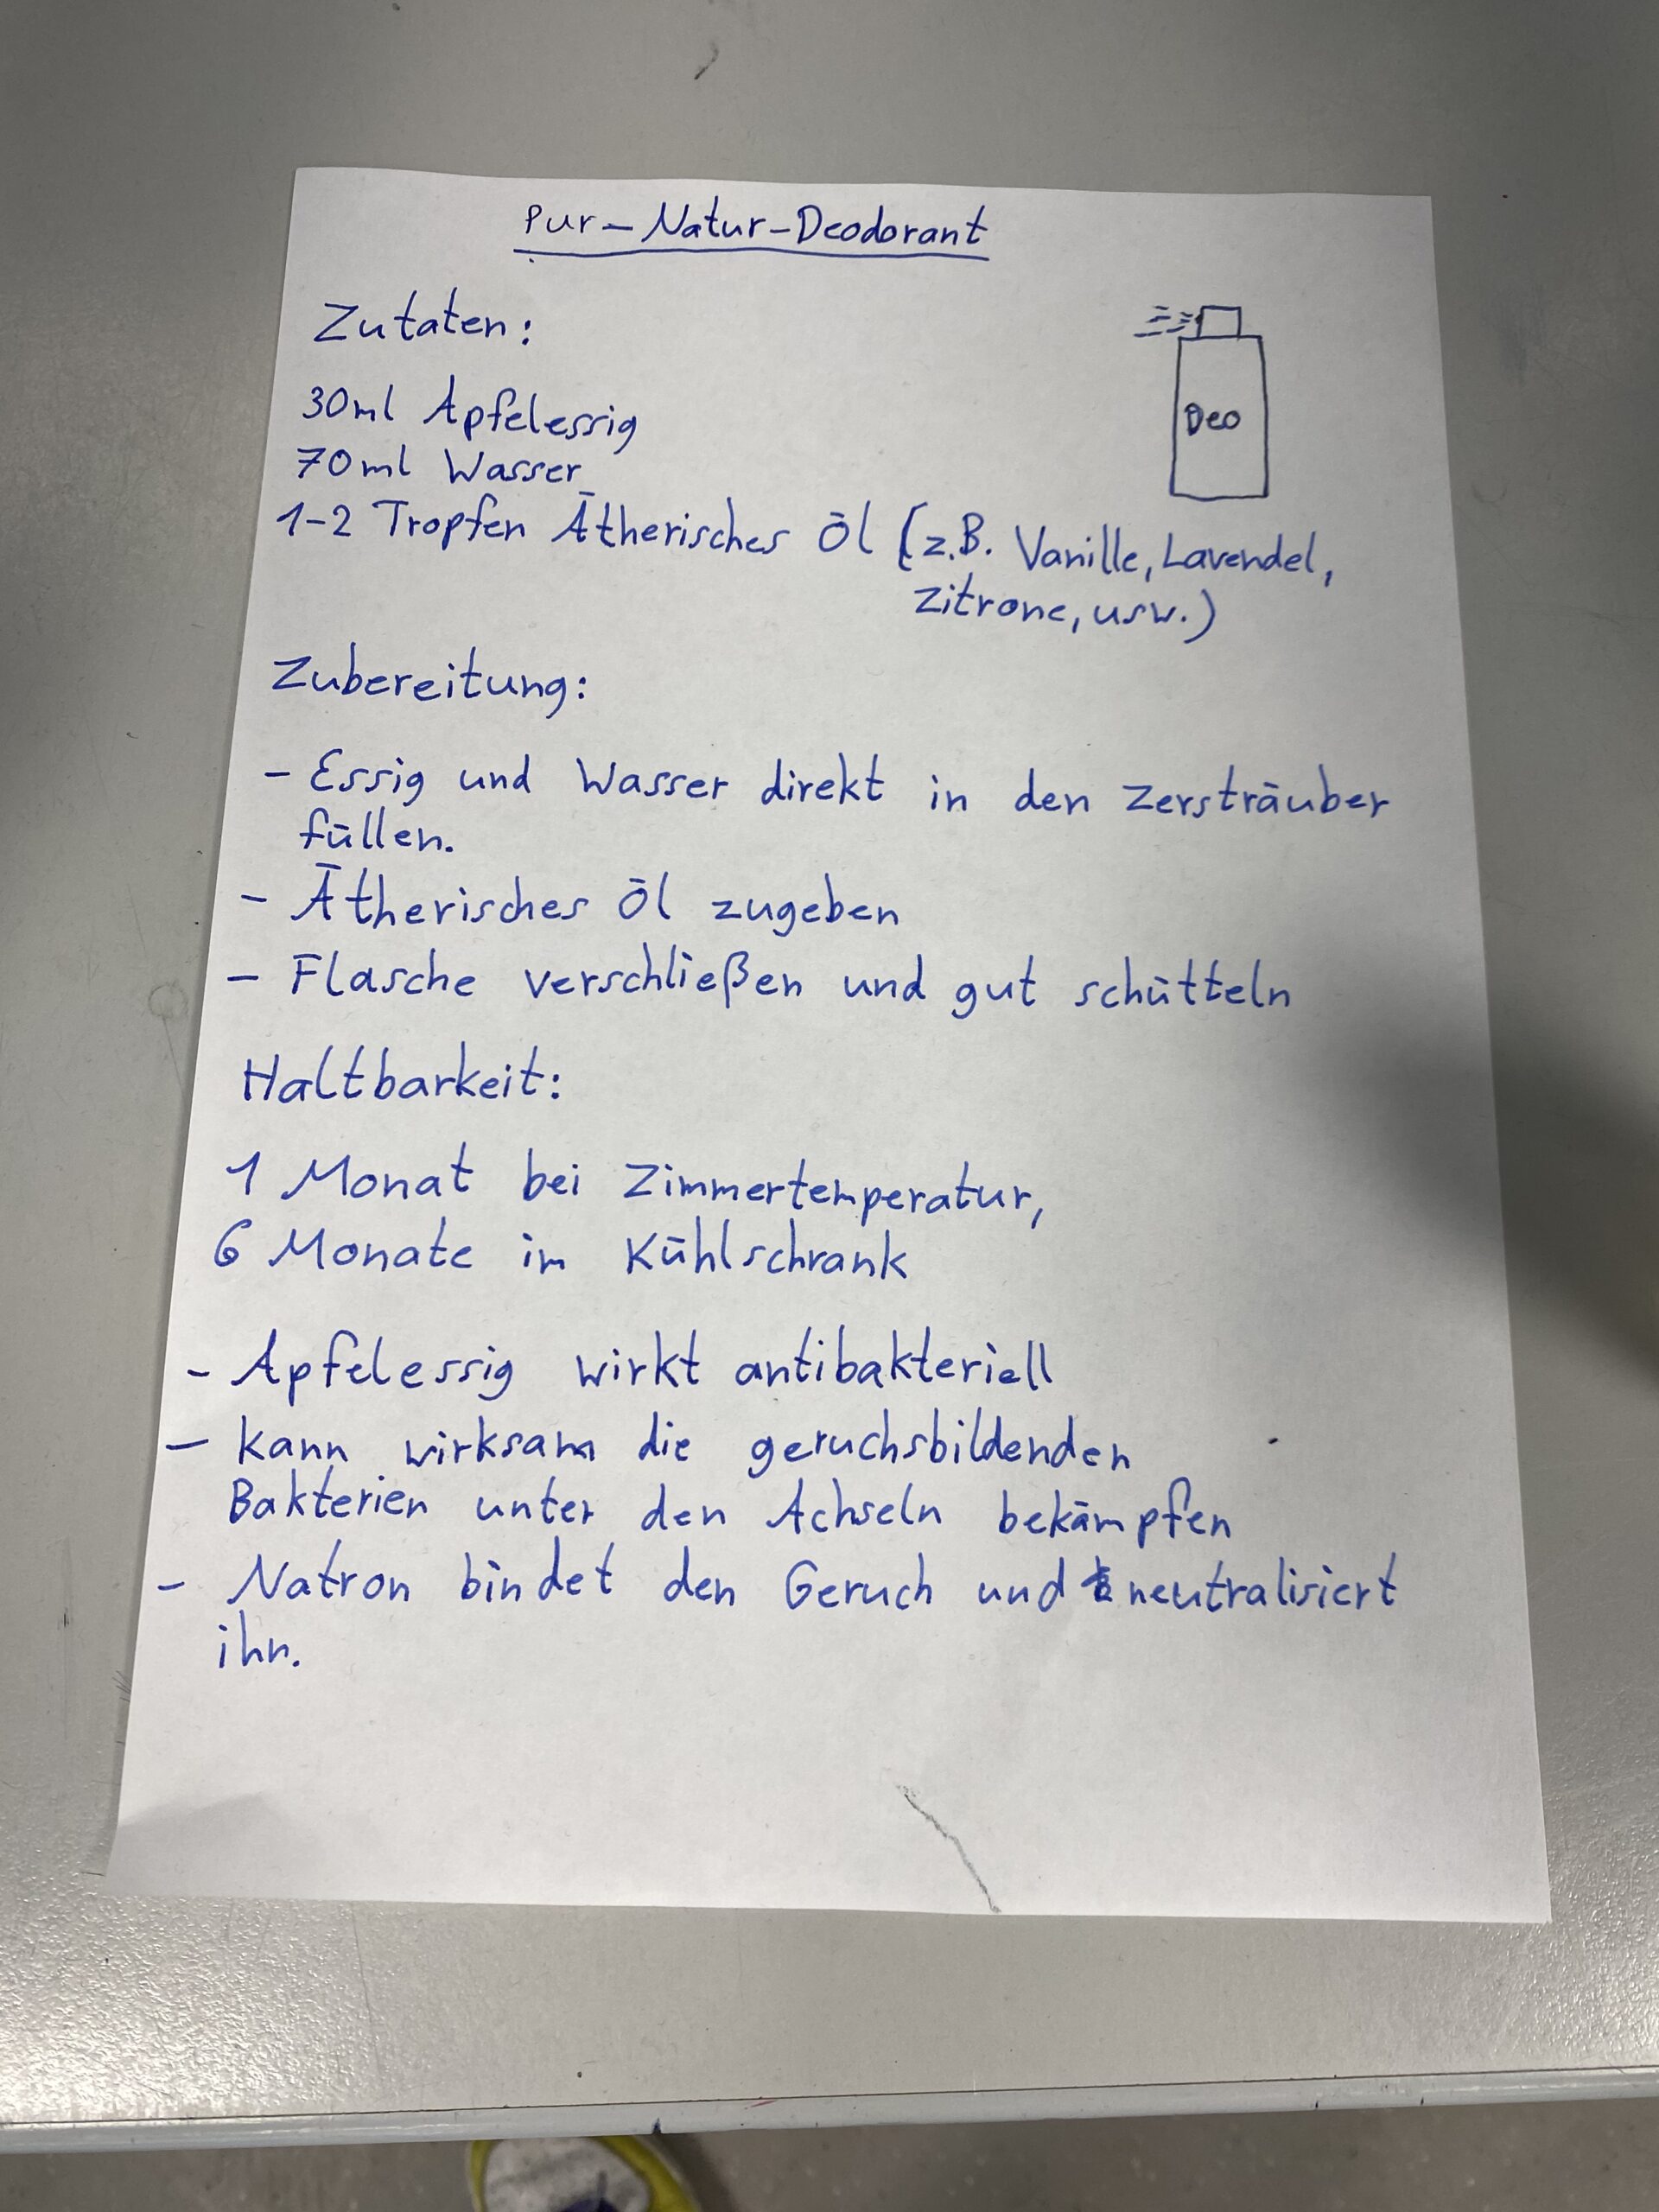 Pur-Natur-Deodorant
Zutaten:
Deo
30ml Apfelessig
70ml Wasser
1-2 Tropfen Ätherisches Öl (z.B. Vanille, Lavendel,
Zitrone, usw.)
Zubereitung:
- Essig und Wasser direkt in den Zersträuber
füllen.
- Ätherisches Öl zugeben
- Flasche verschließen und gut schütteln
Haltbarkeit:
1 Monat bei Zimmertemperatur,
6 Monate im Kühlschrank
- Apfelessig wirkt antibakteriell
- kann wirksam die geruchsbildenden
Bakterien unter den Achseln bekämpfen
- Natron bindet den Geruch und neutralisiert
ihn.